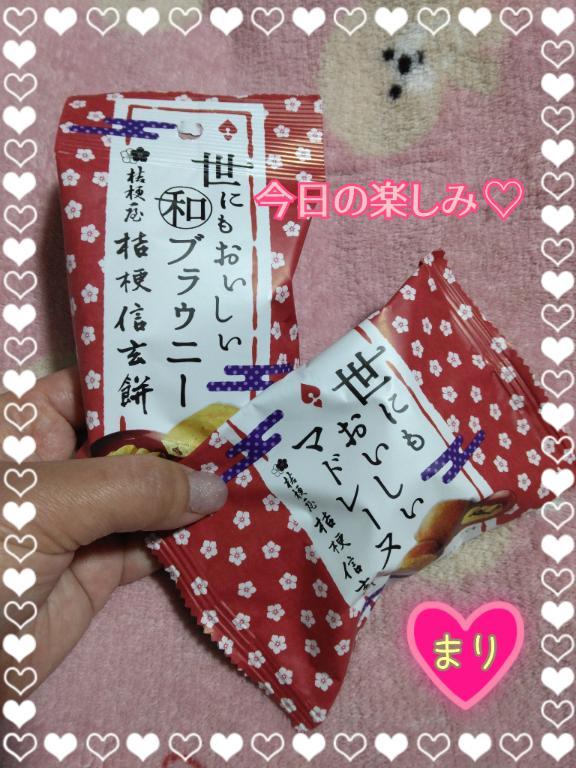 世にもおいしい
㊐和ブラウニー
桔梗屋 桔梗信玄餅
今日の楽しみ♡
世にも
おいしい
マドレーヌ
桔梗屋 桔梗信玄
まり